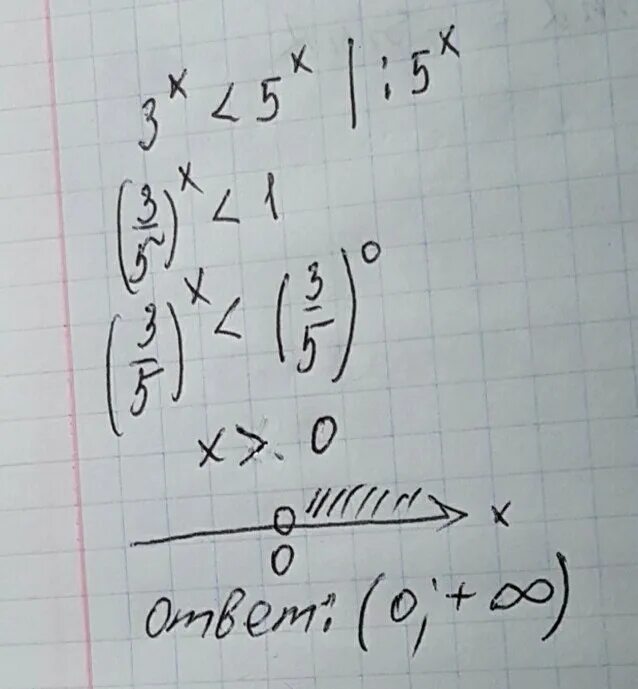 3^x < 5^x | : 5^x
(3/5)^x < 1
(3/5)^x < (3/5)^0
x > 0
x
0
ответ: (0; +∞)